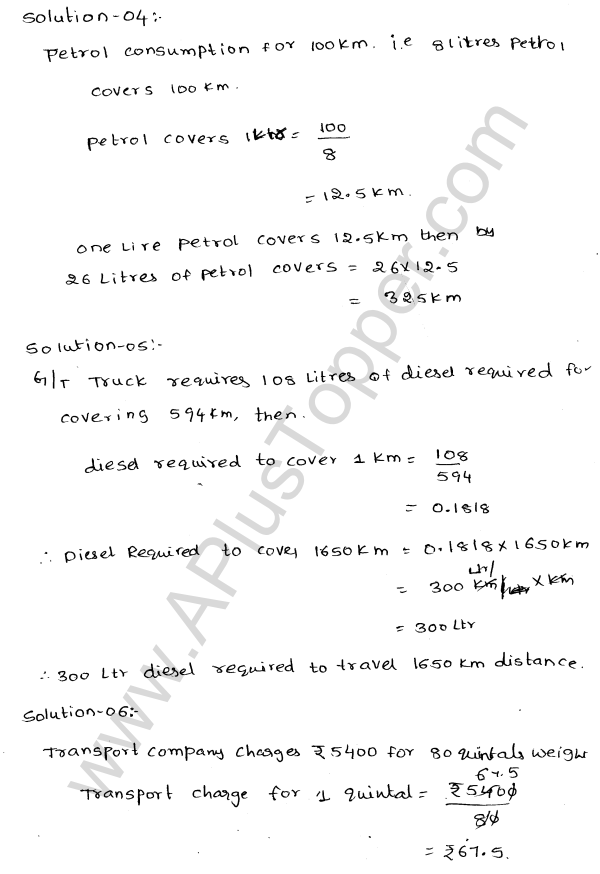 Solution-04:-
Petrol consumption for 100km. i.e 8litres Petrol
covers 100 km.
Petrol covers 1 = 100/8
= 12.5 km.
One Lire Petrol covers 12.5km then by
26 Litres of petrol covers = 26×12.5
= 325km
Solution-05:-
G/T Truck requires 108 Litres of diesel required for
covering 594km, then.
diesel required to cover 1 km = 108/594
= 0.1818
∴ Diesel Required to cover 1650km = 0.1818×1650km
= 300 Ltr/km × km
= 300 Ltr
∴ 300 Ltr diesel required to travel 1650 km distance.
Solution-06:-
Transport company charges ₹5400 for 80 quintals weight
67.5
Transport charge for 1 quintal = ₹5400/80
= ₹67.5.
www.APlusTopper.com